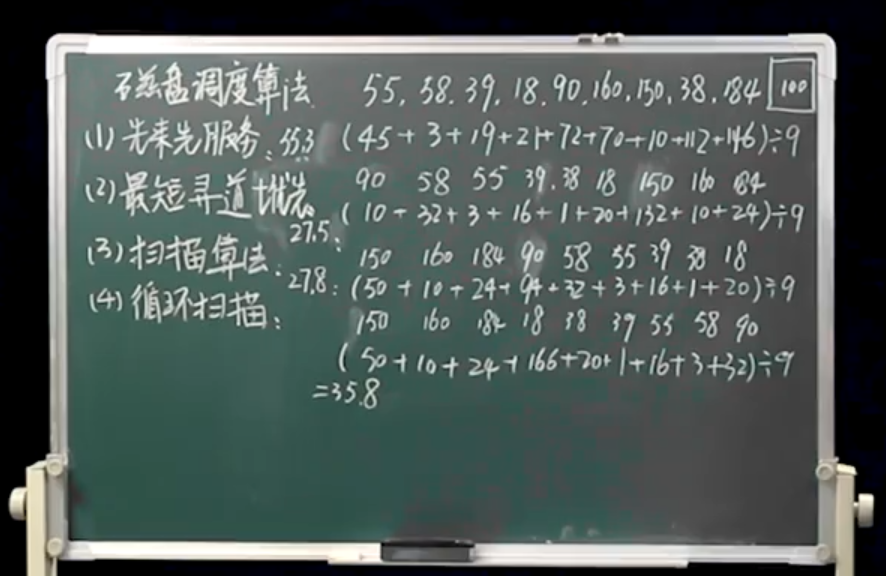 磁盘调度算法 55, 58, 39, 18, 90, 160, 150, 38, 184 100
(1) 先来先服务: 55.3 (45+3+19+21+72+70+10+112+146)÷9
90 58 55 39. 38 18 150 160 184
(2) 最短寻道优先 27.5: (10+32+3+16+1+20+132+10+24)÷9
(3) 扫描算法: 150 160 184 90 58 55 39 38 18
27.8: (50+10+24+94+32+3+16+1+20)÷9
(4) 循环扫描: 150 160 184 18 38 39 55 58 90
(50+10+24+166+20+1+16+3+32)÷9
=35.8